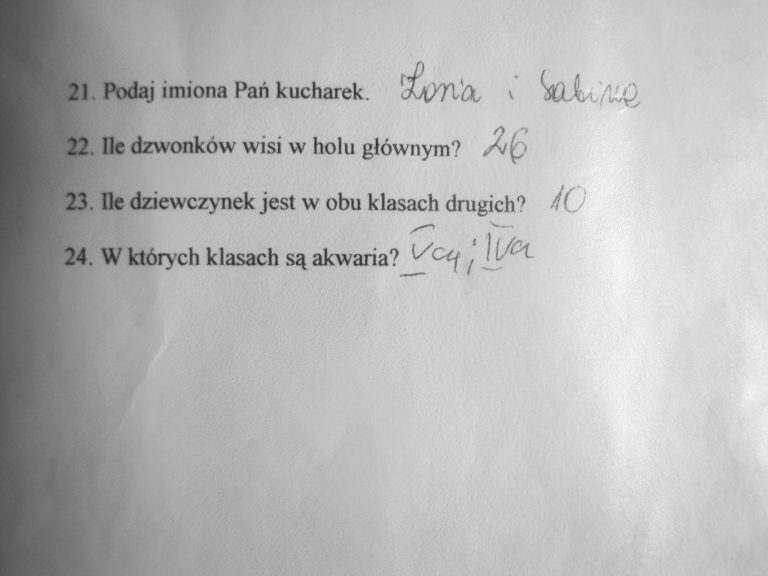 21. Podaj imiona Pań kucharek. Zonia i Sabina
22. Ile dzwonków wisi w holu głównym? 26
23. Ile dziewczynek jest w obu klasach drugich? 10
24. W których klasach są akwaria? Va; IVa